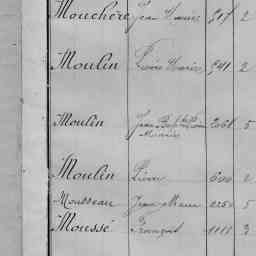 Mouchère Jean Marie 917 2
Moulin Pierre Marie 941 2
Moulin Jean Baptiste 2068 5
Maurice
Moulin Pierre 600 2
Mousseau Jean Marie 2250 5
Moussé François 1111 3